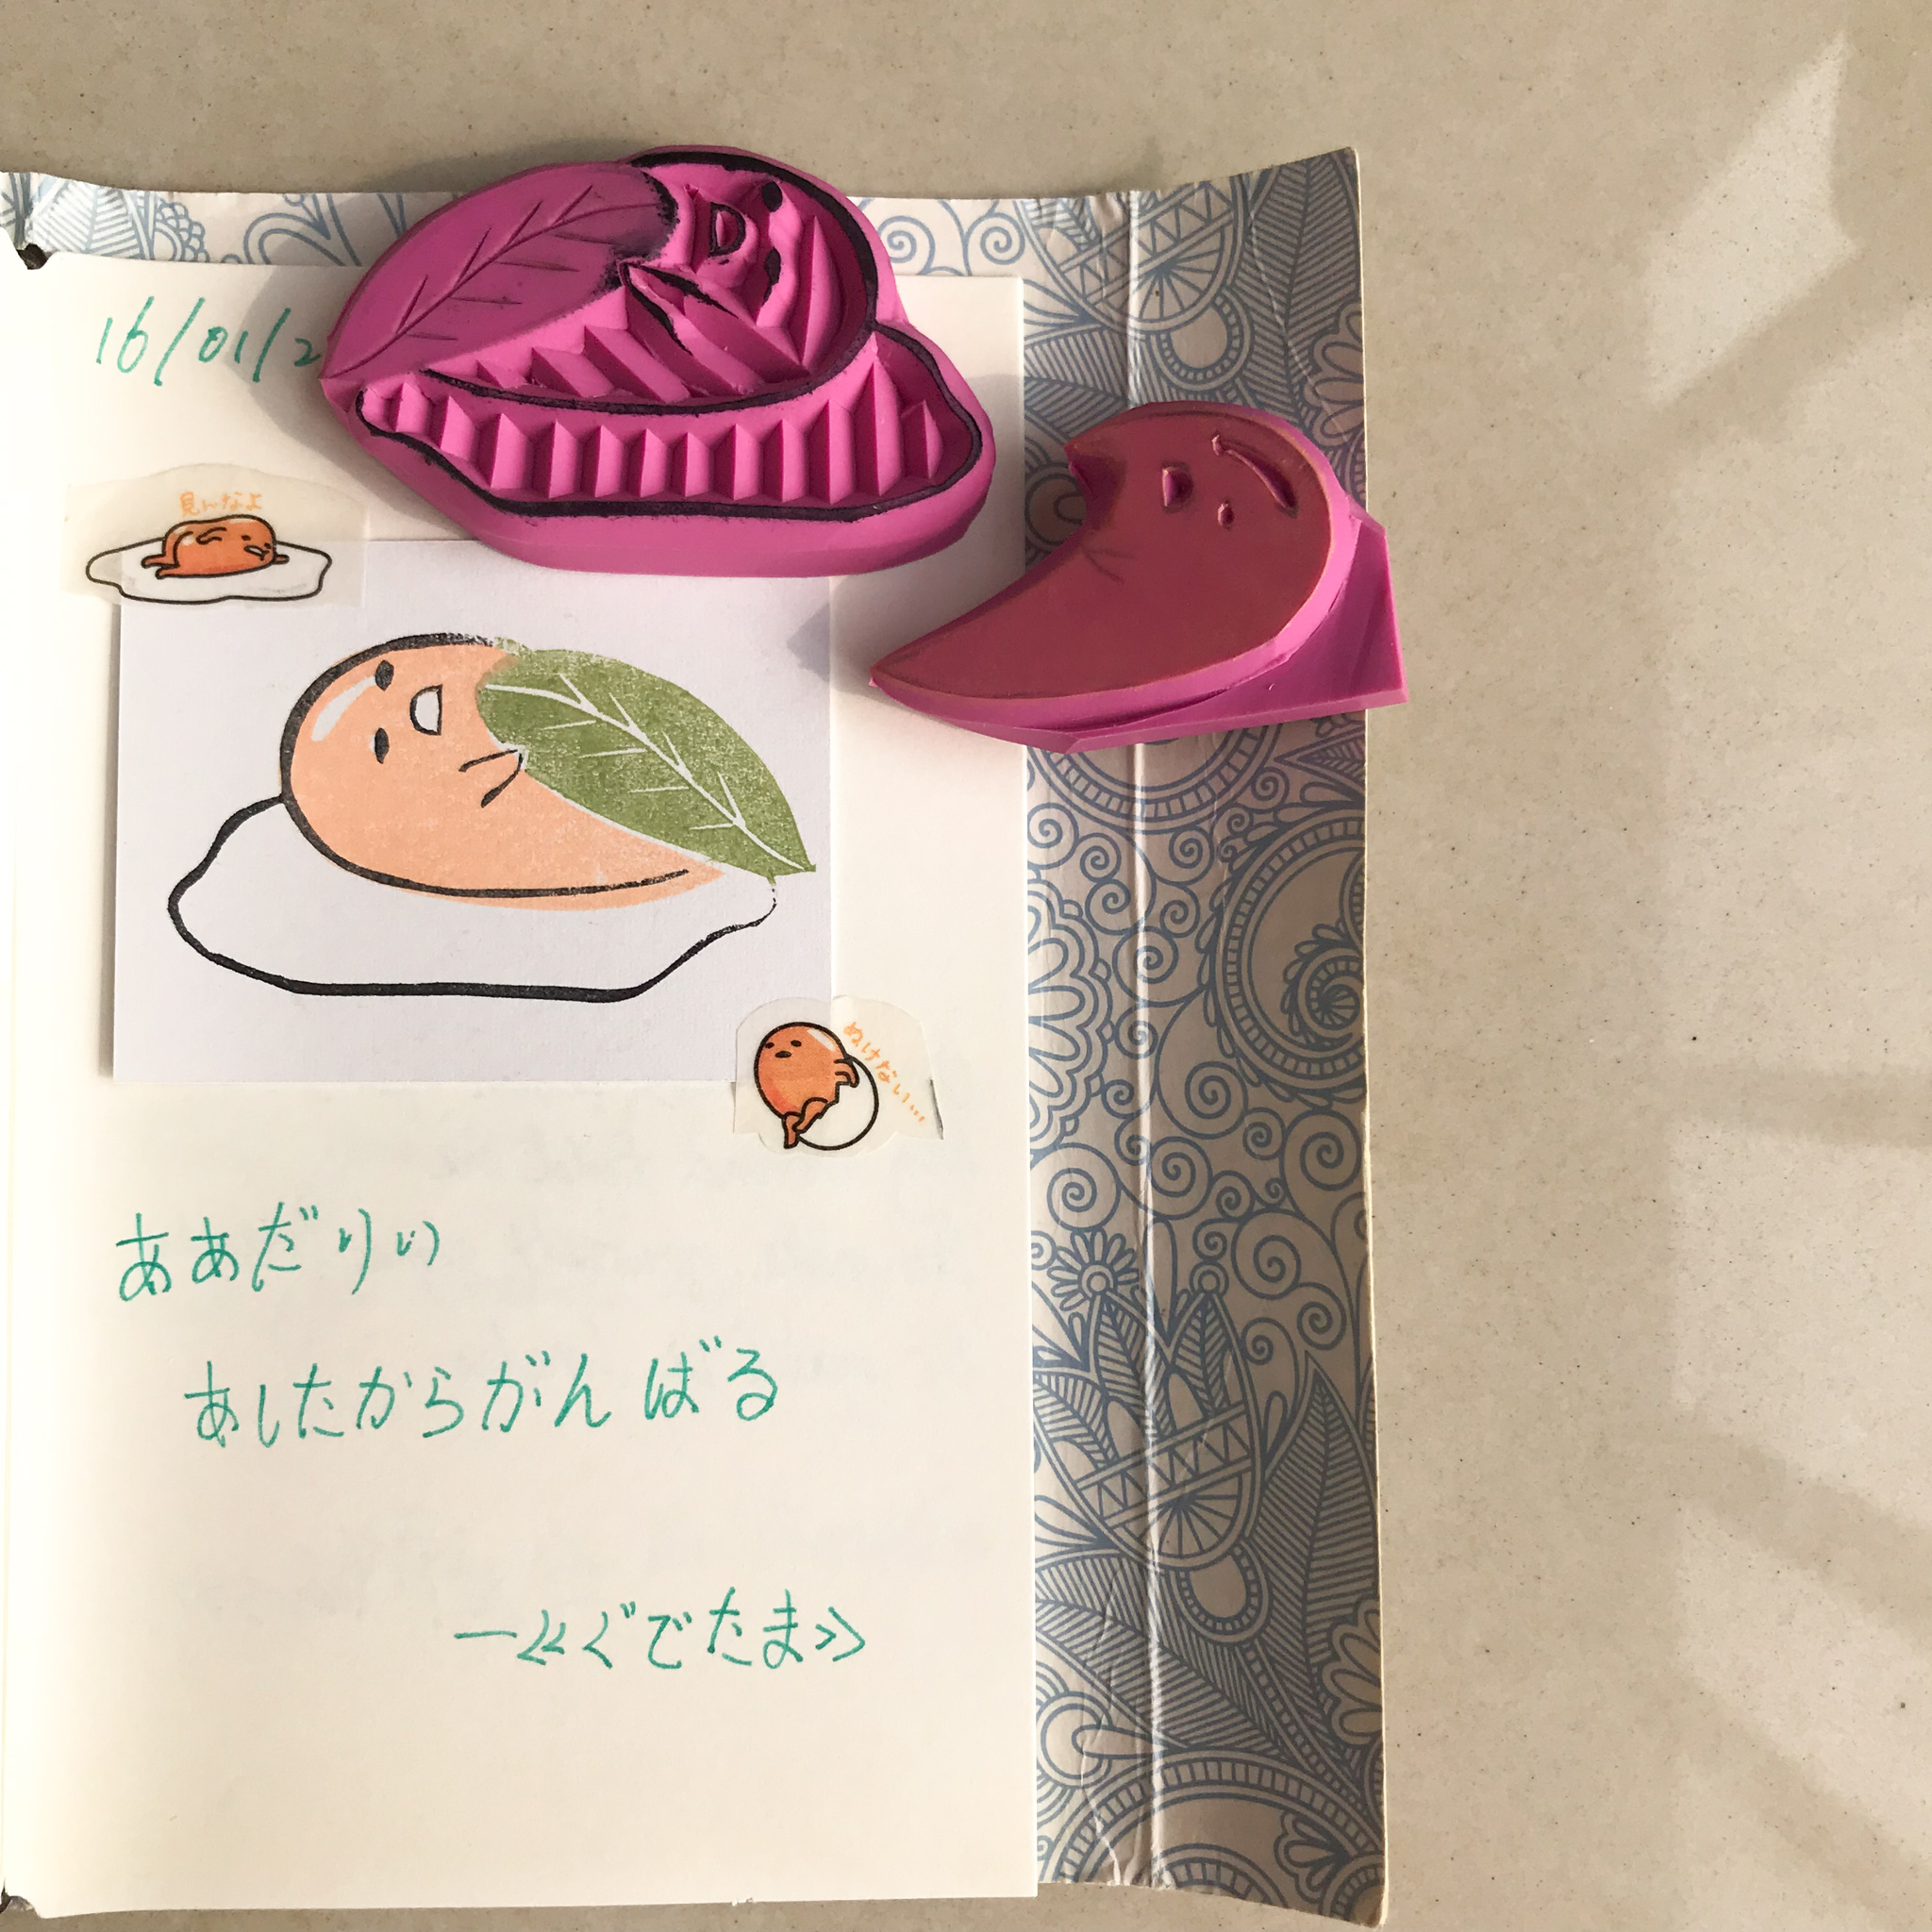 16/01/2
見んなよ
ぬけない...
ああだりぃ
あしたからがんばる
—≪ぐでたま≫